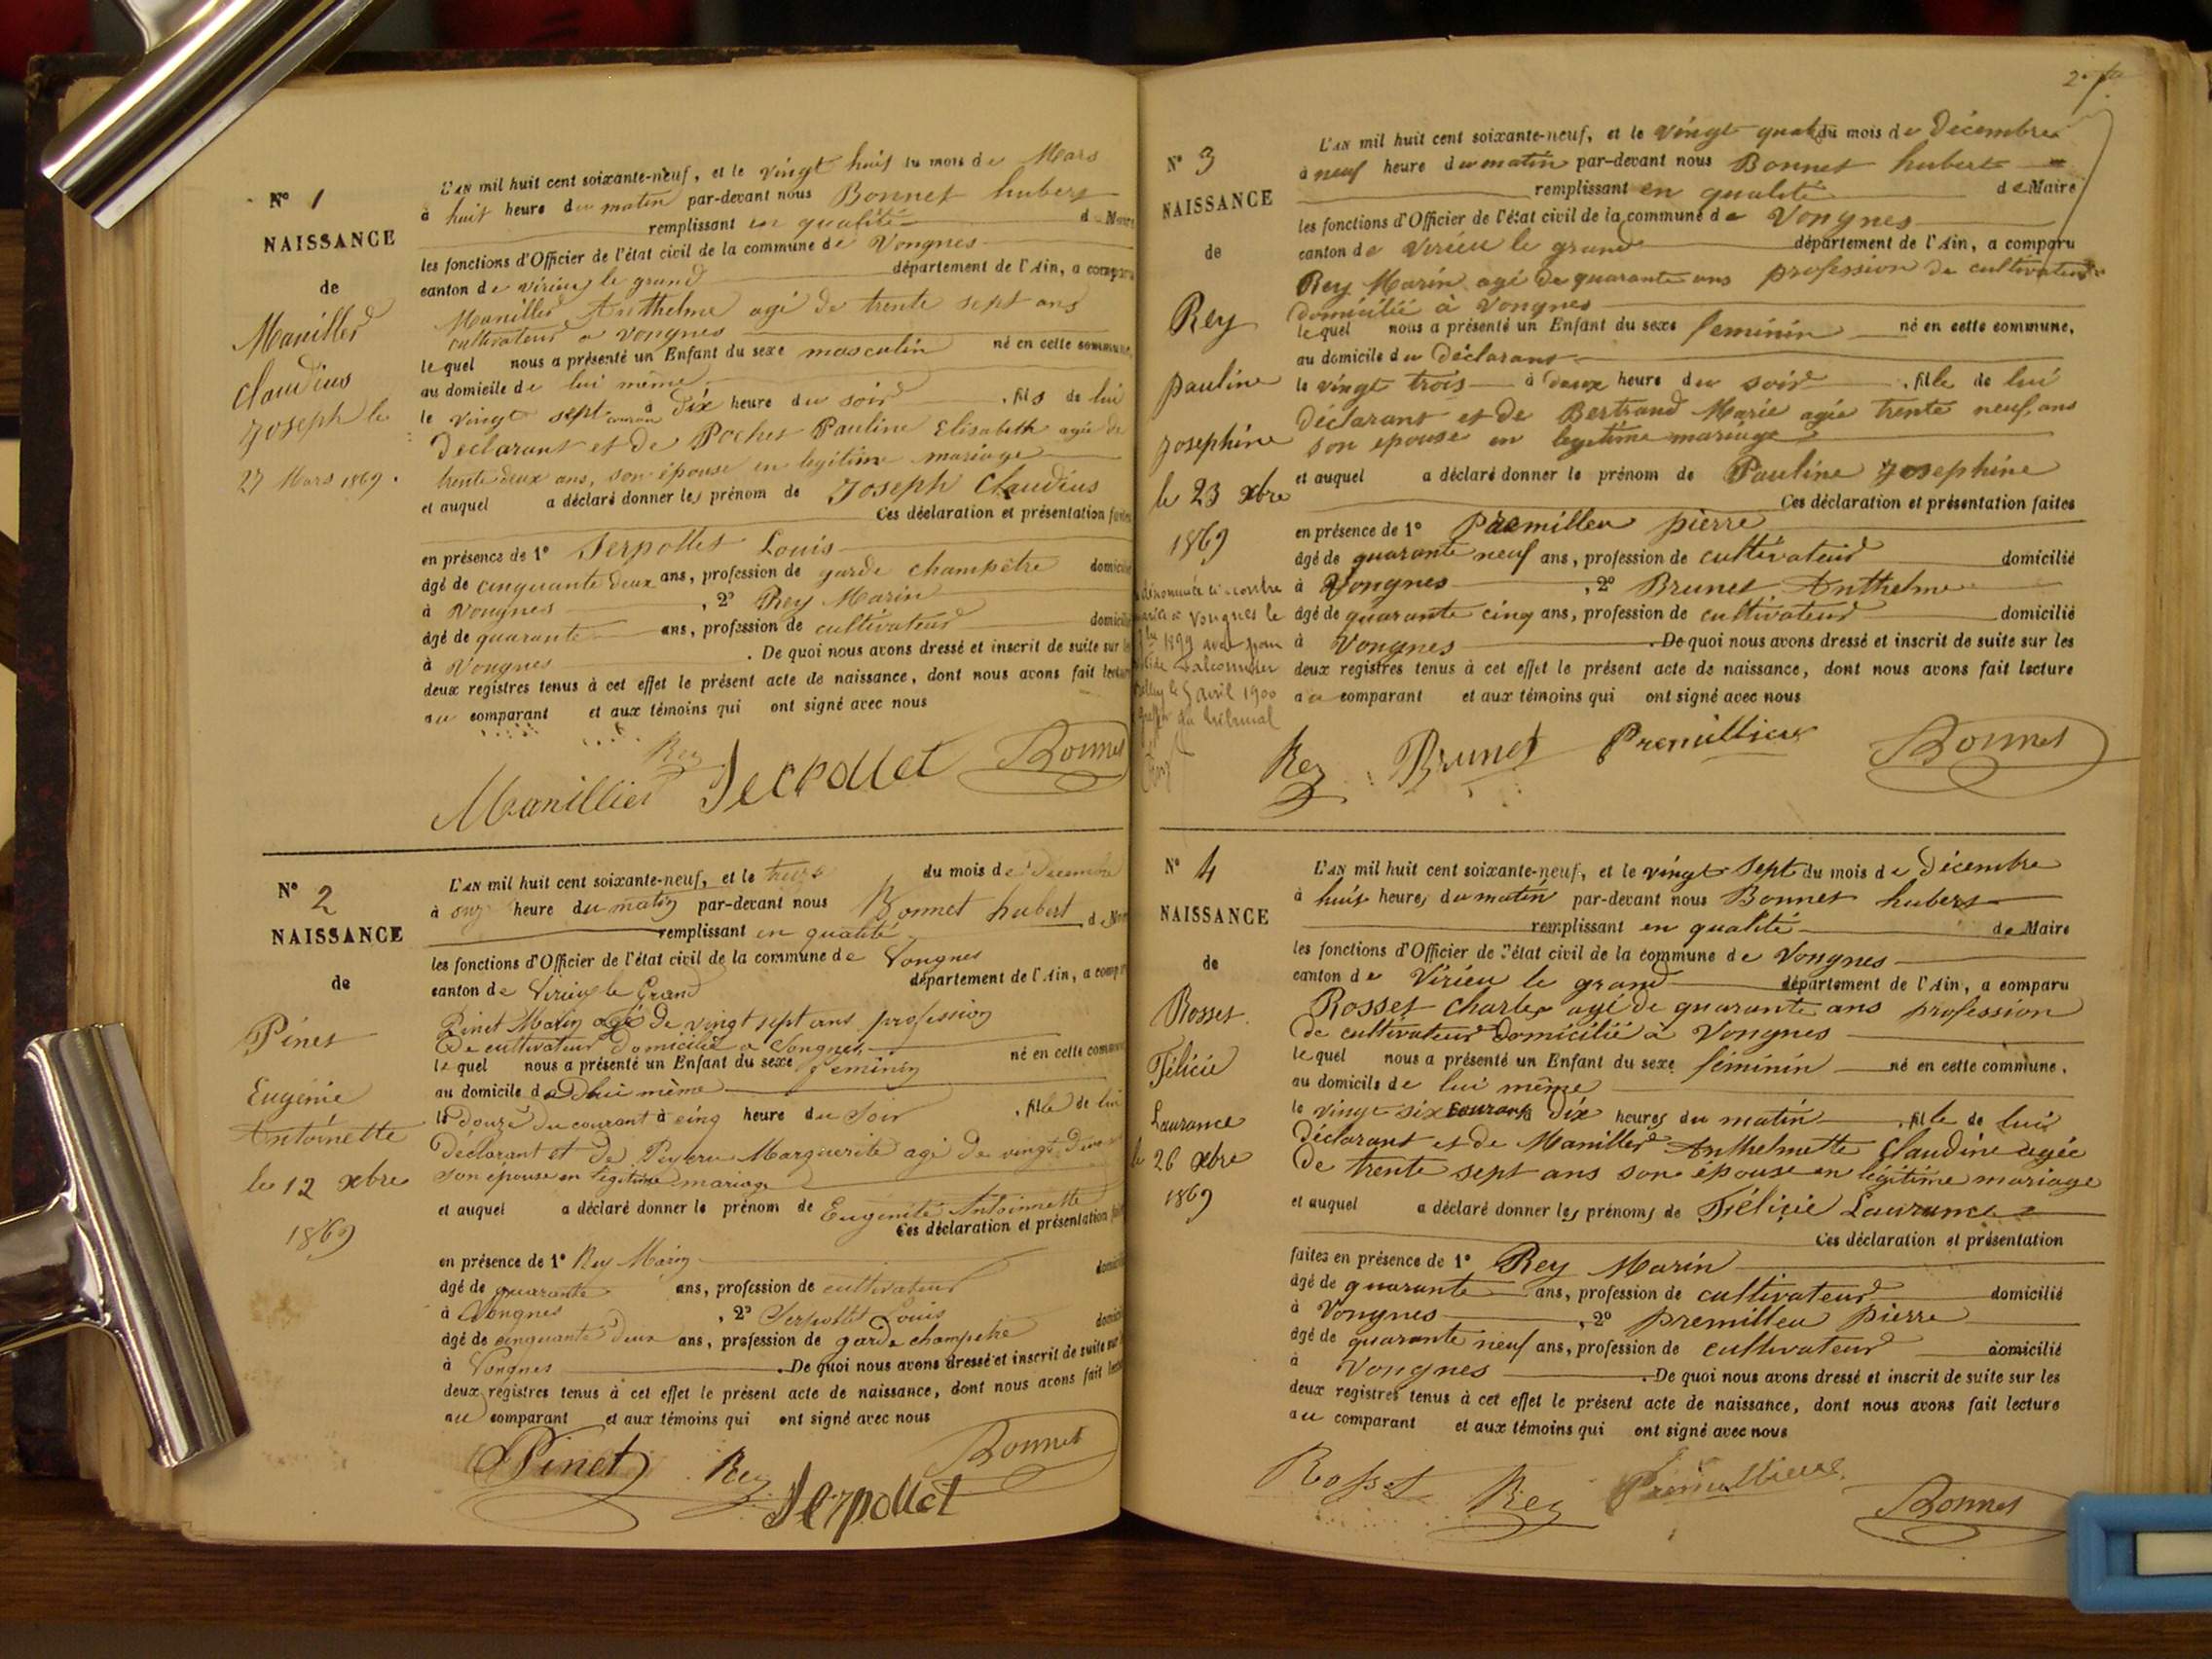 N° 1
NAISSANCE
de
Manillier
Claudius
Joseph le
27 Mars 1869.
L'AN mil huit cent soixante-neuf, et le vingt huit du mois de Mars
à huit heure du matin par-devant nous Bonnet hubert
remplissant en qualité de Maire
les fonctions d'Officier de l'état civil de la commune de Vongnes
canton de virieu le grand département de l'Ain, a comparu
Manillier Anthelme agé de trente sept ans
cultivateur a Vongnes
lequel nous a présenté un Enfant du sexe masculin né en cette commune,
au domicile de lui même
le vingt sept courant à Dix heure du soir , fils de lui
Déclarant et de Pochet Pauline Elisabeth agée de
trente deux ans, son épouse en légitime mariage
et auquel a déclaré donner les prénom de Joseph Claudius
Ces déclaration et présentation faites
en présence de 1° Serpollet Louis
âgé de cinquante deux ans, profession de garde champêtre domicilié
à Vongnes , 2° Rey Marin
âgé de quarante ans, profession de cultivateur domicilié
à Vongnes . De quoi nous avons dressé et inscrit de suite sur les
deux registres tenus à cet effet le présent acte de naissance, dont nous avons fait lecture
au comparant et aux témoins qui ont signé avec nous
Rey
Manillier Serpollet Bonnet
N° 2
NAISSANCE
de
Pinet
Eugénie
Antoinette
le 12 xbre
1869
L'AN mil huit cent soixante-neuf, et le treize du mois de Décembre
à onze heure du matin par-devant nous Bonnet hubert
remplissant en qualité de Maire
les fonctions d'Officier de l'état civil de la commune de Vongnes
canton de Virieu le Grand département de l'Ain, a comparu
Pinet Marin agé de vingt sept ans profession
De cultivateur domicilié a Vongnes
lequel nous a présenté un Enfant du sexe feminin né en cette commune
au domicile de lui même
le Douze du courant à cinq heure du Soir , fille de lui
Déclarant et De Marguerite agé De vingt
son épouse en légitime mariage
et auquel a déclaré donner le prénom de Eugénie Antoinette
Ces déclaration et présentation faites
en présence de 1° Rey Marin domicilié
âgé de quarante ans, profession de cultivateur
à Vongnes , 2° Serpollet Louis
âgé de cinquante deux ans, profession de garde champetre domicilié
à Vongnes . De quoi nous avons dressé et inscrit de suite sur les
deux registres tenus à cet effet le présent acte de naissance, dont nous avons fait lecture
au comparant et aux témoins qui ont signé avec nous
Pinet Rey Bonnet
Serpollet
N° 3
NAISSANCE
de
Rey
pauline
Josephine
le 23 xbre
1869
dénommée ci-contre
mariée à Vongnes le
1899 avec
Falconnier
Belley le 5 avril 1900
greffier du tribunal
L'AN mil huit cent soixante-neuf, et le vingt quatre du mois de Décembre
à neuf heure du matin par-devant nous Bonnet hubert
remplissant en qualité de Maire
les fonctions d'Officier de l'état civil de la commune de Vongnes
canton de Virieu le grand département de l'Ain, a comparu
Rey Marin agé de quarante ans profession de cultivateur
domicilié à Vongnes
lequel nous a présenté un Enfant du sexe feminin né en cette commune,
au domicile du Déclarant
le vingt trois à deux heure du soir , fille de lui
Déclarant et de Bertrand Marie agée trente neuf ans
son epouse en legitime mariage
et auquel a déclaré donner le prénom de Pauline Josephine
Ces déclaration et présentation faites
en présence de 1° Premilleu pierre
âgé de quarante neuf ans, profession de cultivateur domicilié
à Vongnes , 2° Brunet Anthelme
âgé de quarante cinq ans, profession de cultivateur domicilié
à Vongnes . De quoi nous avons dressé et inscrit de suite sur les
deux registres tenus à cet effet le présent acte de naissance, dont nous avons fait lecture
au comparant et aux témoins qui ont signé avec nous
Rey Brunet Premillieu Bonnet
N° 4
NAISSANCE
de
Rosset
Félicie
Laurance
le 26 xbre
1869
L'AN mil huit cent soixante-neuf, et le vingt sept du mois de Décembre
à huit heures du matin par-devant nous Bonnet hubert
remplissant en qualité de Maire
les fonctions d'Officier de l'état civil de la commune de Vongnes
canton de Virieu le grand département de l'Ain, a comparu
Rosset Charles agé de quarante ans profession
de cultivateur Domicilié à Vongnes
lequel nous a présenté un Enfant du sexe féminin né en cette commune,
au domicile de lui même
le vingt six courant à Dix heures du matin , fille de lui
Déclarant et de Manillier Anthelmette Claudine agée
De trente sept ans son épouse en légitime mariage
et auquel a déclaré donner les prénoms de Félicie Laurance
Ces déclaration et présentation
faites en présence de 1° Rey Marin
âgé de quarante ans, profession de cultivateur domicilié
à Vongnes , 2° premilleu pierre
âgé de quarante neuf ans, profession de cultivateur domicilié
à Vongnes . De quoi nous avons dressé et inscrit de suite sur les
deux registres tenus à cet effet le présent acte de naissance, dont nous avons fait lecture
au comparant et aux témoins qui ont signé avec nous
Rosset Rey Premillieu Bonnet